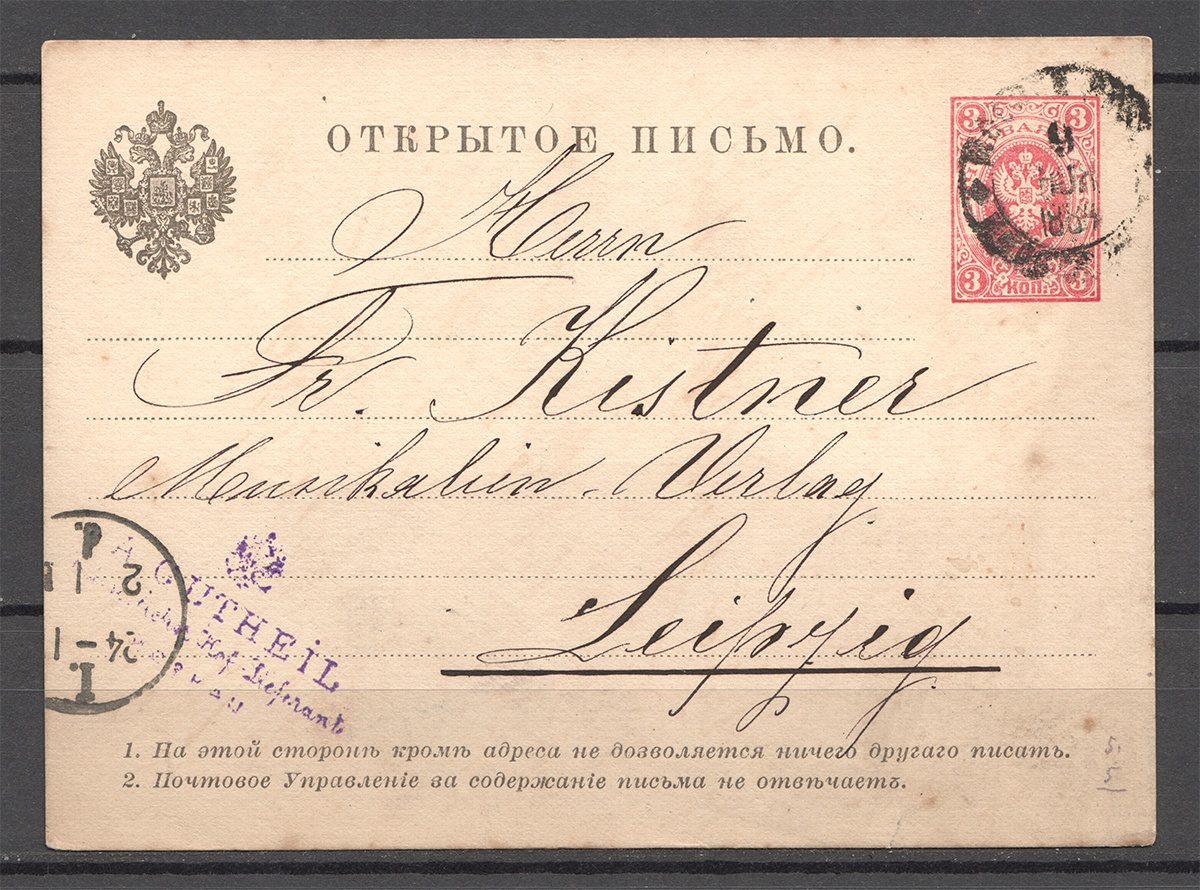 ОТКРЫТОЕ ПИСЬМО.
3 3
3 КОП. 3
9
ЯНВ
1881
Herrn
Fr. Kistner
Musikalien-Verlag
Leipzig
A. GUTHEIL
Hof-Lieferant
2 I
24-1
I.
1. На этой сторонѣ кромѣ адреса не дозволяется ничего другаго писать.
2. Почтовое Управленіе за содержаніе письма не отвѣчаетъ.